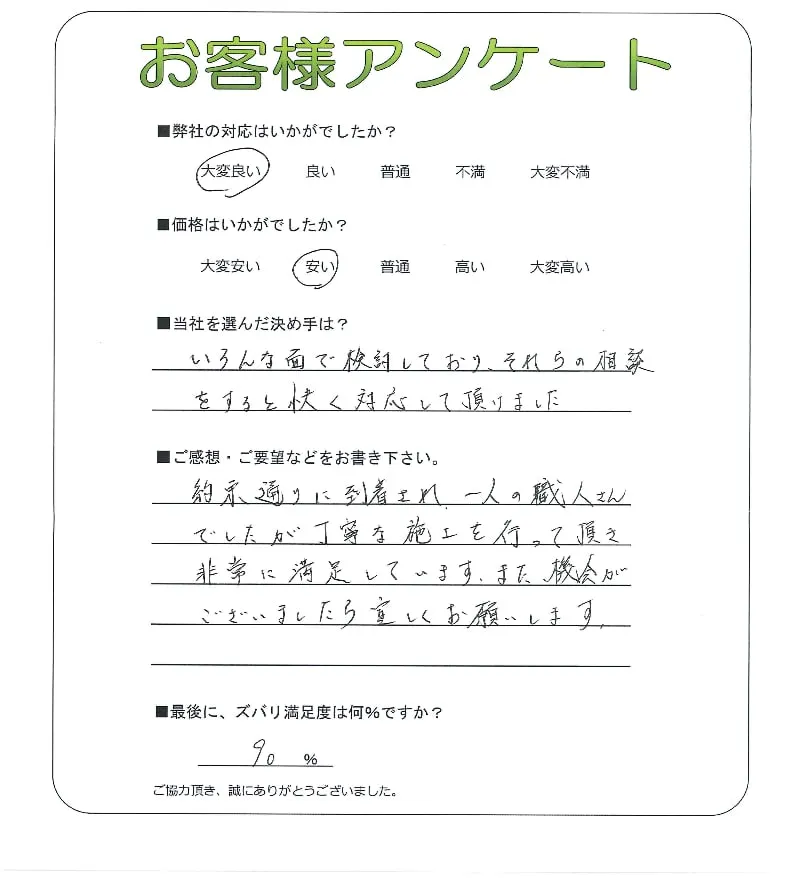 お客様アンケート
■弊社の対応はいかがでしたか？
大変良い 良い 普通 不満 大変不満
■価格はいかがでしたか？
大変安い 安い 普通 高い 大変高い
■当社を選んだ決め手は？
いろんな面で検討しており、それらの相談
をすると快く対応して頂けました
■ご感想・ご要望などをお書き下さい。
約束通りに到着され、一人の職人さん
でしたが丁寧な施工を行って頂き
非常に満足しています、また機会が
ございましたら宜しくお願いします。
■最後に、ズバリ満足度は何％ですか？
90 ％
ご協力頂き、誠にありがとうございました。